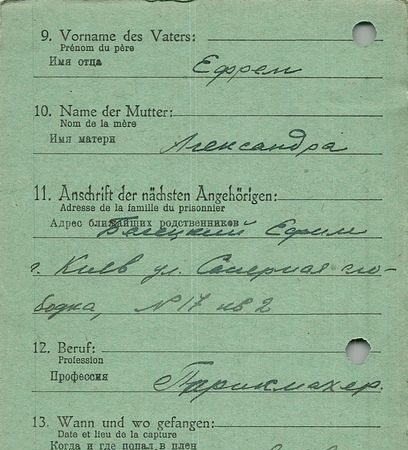 9. Vorname des Vaters:
Prénom du père
Имя отца
Ефрем
10. Name der Mutter:
Nom de la mère
Имя матери
Александра
11. Anschrift der nächsten Angehörigen:
Adresse de la famille du prisonnier
Адрес ближайших родственников
Ефим
г. Киев ул. Саперная сло-
бодка, №17 кв 2
12. Beruf:
Profession
Профессия
Парикмахер.
13. Wann und wo gefangen:
Date et lieu de la capture
Когда и где попал в плен